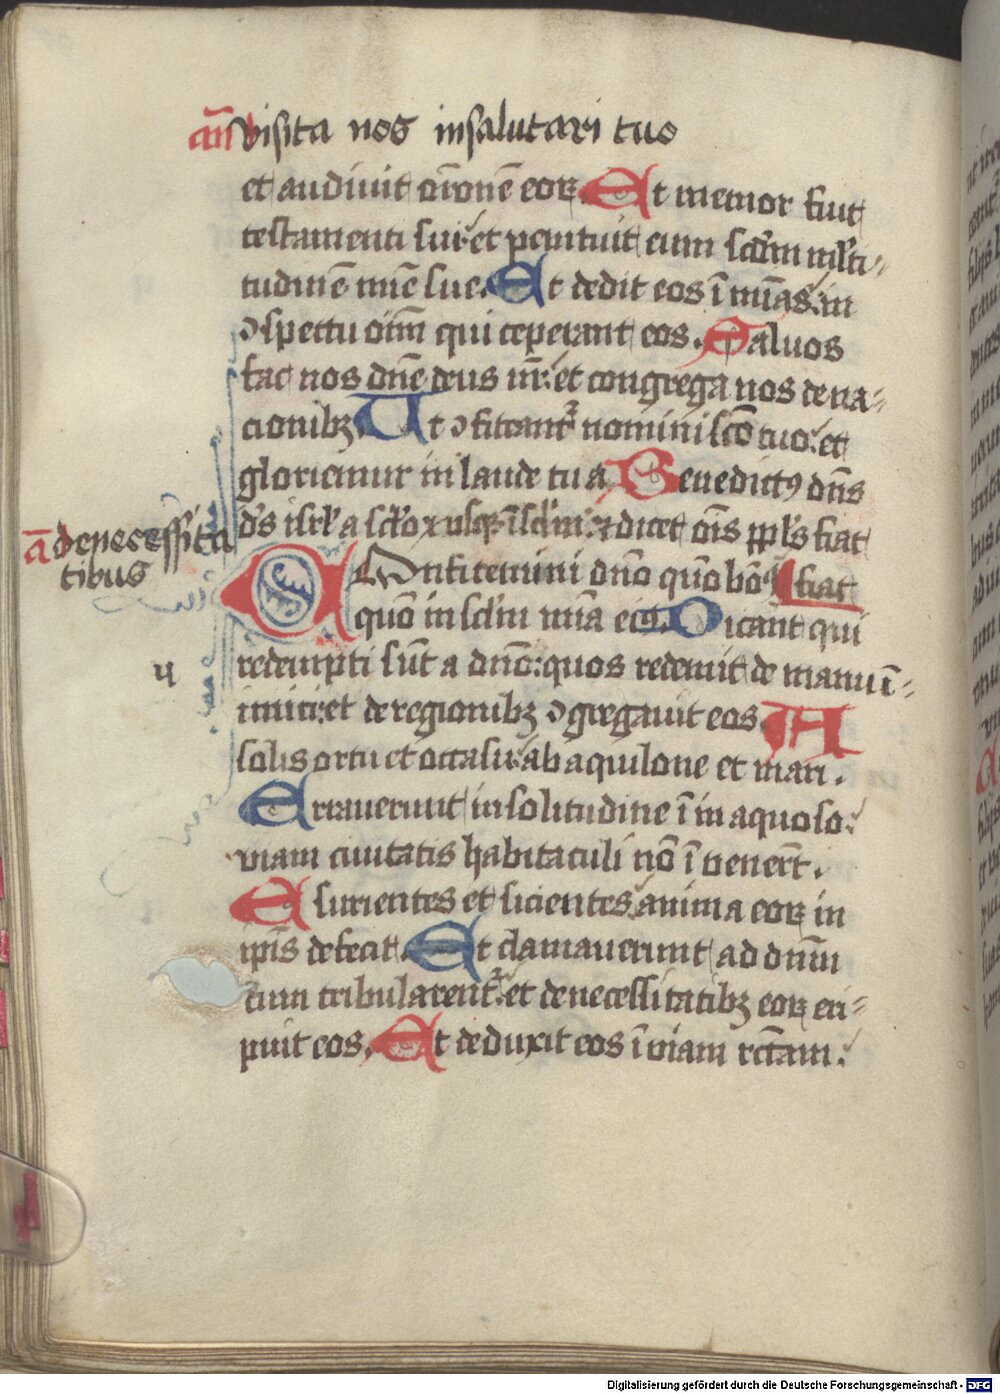 añ visita nos in salutari tuo
et audiuit or̄onē eoꝝ. Et memor fuit
testamenti sui: et penituit eum scd̄m ml̄ti-
tudinē mīe sue. Et dedit eos ī mīas: in
ꝯspectu oīm qui ceperant eos. Saluos
fac nos dn̄e deus nr̄: et congrega nos de na-
cionibꝫ Ut ꝯfiteantᷣ nomini scō tuo: et
gloriemur in laude tua. Benedictꝰ dn̄s
ds̄ isrl̄ a scl̄o ⁊ usqꝫ ī scl̄m: ⁊ dicet oīs ppl̄s fiat
ā de necessita
tibus
fiat
COnfitemini dn̄o qm̄ bonꝰ
quō in scl̄m mīa eiꝰ. Dicant qui
redempti sūt a dn̄o: quos redemit de manu ī-
imici: et de regionibꝫ ꝯgregauit eos A
solis ortu et occasu: ab aquilone et mari.
Errauerunt in solitudine ī inaquoso:
viam ciuitatis habitaculi nō īvenerūt.
Esurientes et sicientes: anima eoꝝ in
ipīs defecit. Et clamauerunt ad dn̄m
cum tribularentᷣ: et de necessitatibꝫ eoꝝ eri-
puit eos. Et deduxit eos ī viam rectam:
Digitalisierung gefördert durch die Deutsche Forschungsgemeinschaft - DFG